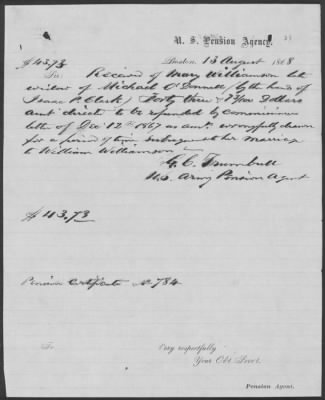 U. S. Pension Agency,
$43.73 Boston 13 August 1868
Sir: Received of Mary Williamson late
widow of Michael O'Donnell (by the hand of
Isaac P. Clark) Forty three & 73/100 Dollars
am't directed to be refunded by commissioners
letter of Dec 12th 1867 as am't wrongfully drawn
for a period of time subsequent to her marriage
to William Williamson
G. C. Trumbull
U.S. Army Pension Agent
$43.73
Pension Certificate No 784
To Very respectfully
Your Obt. Servt.
Pension Agent.